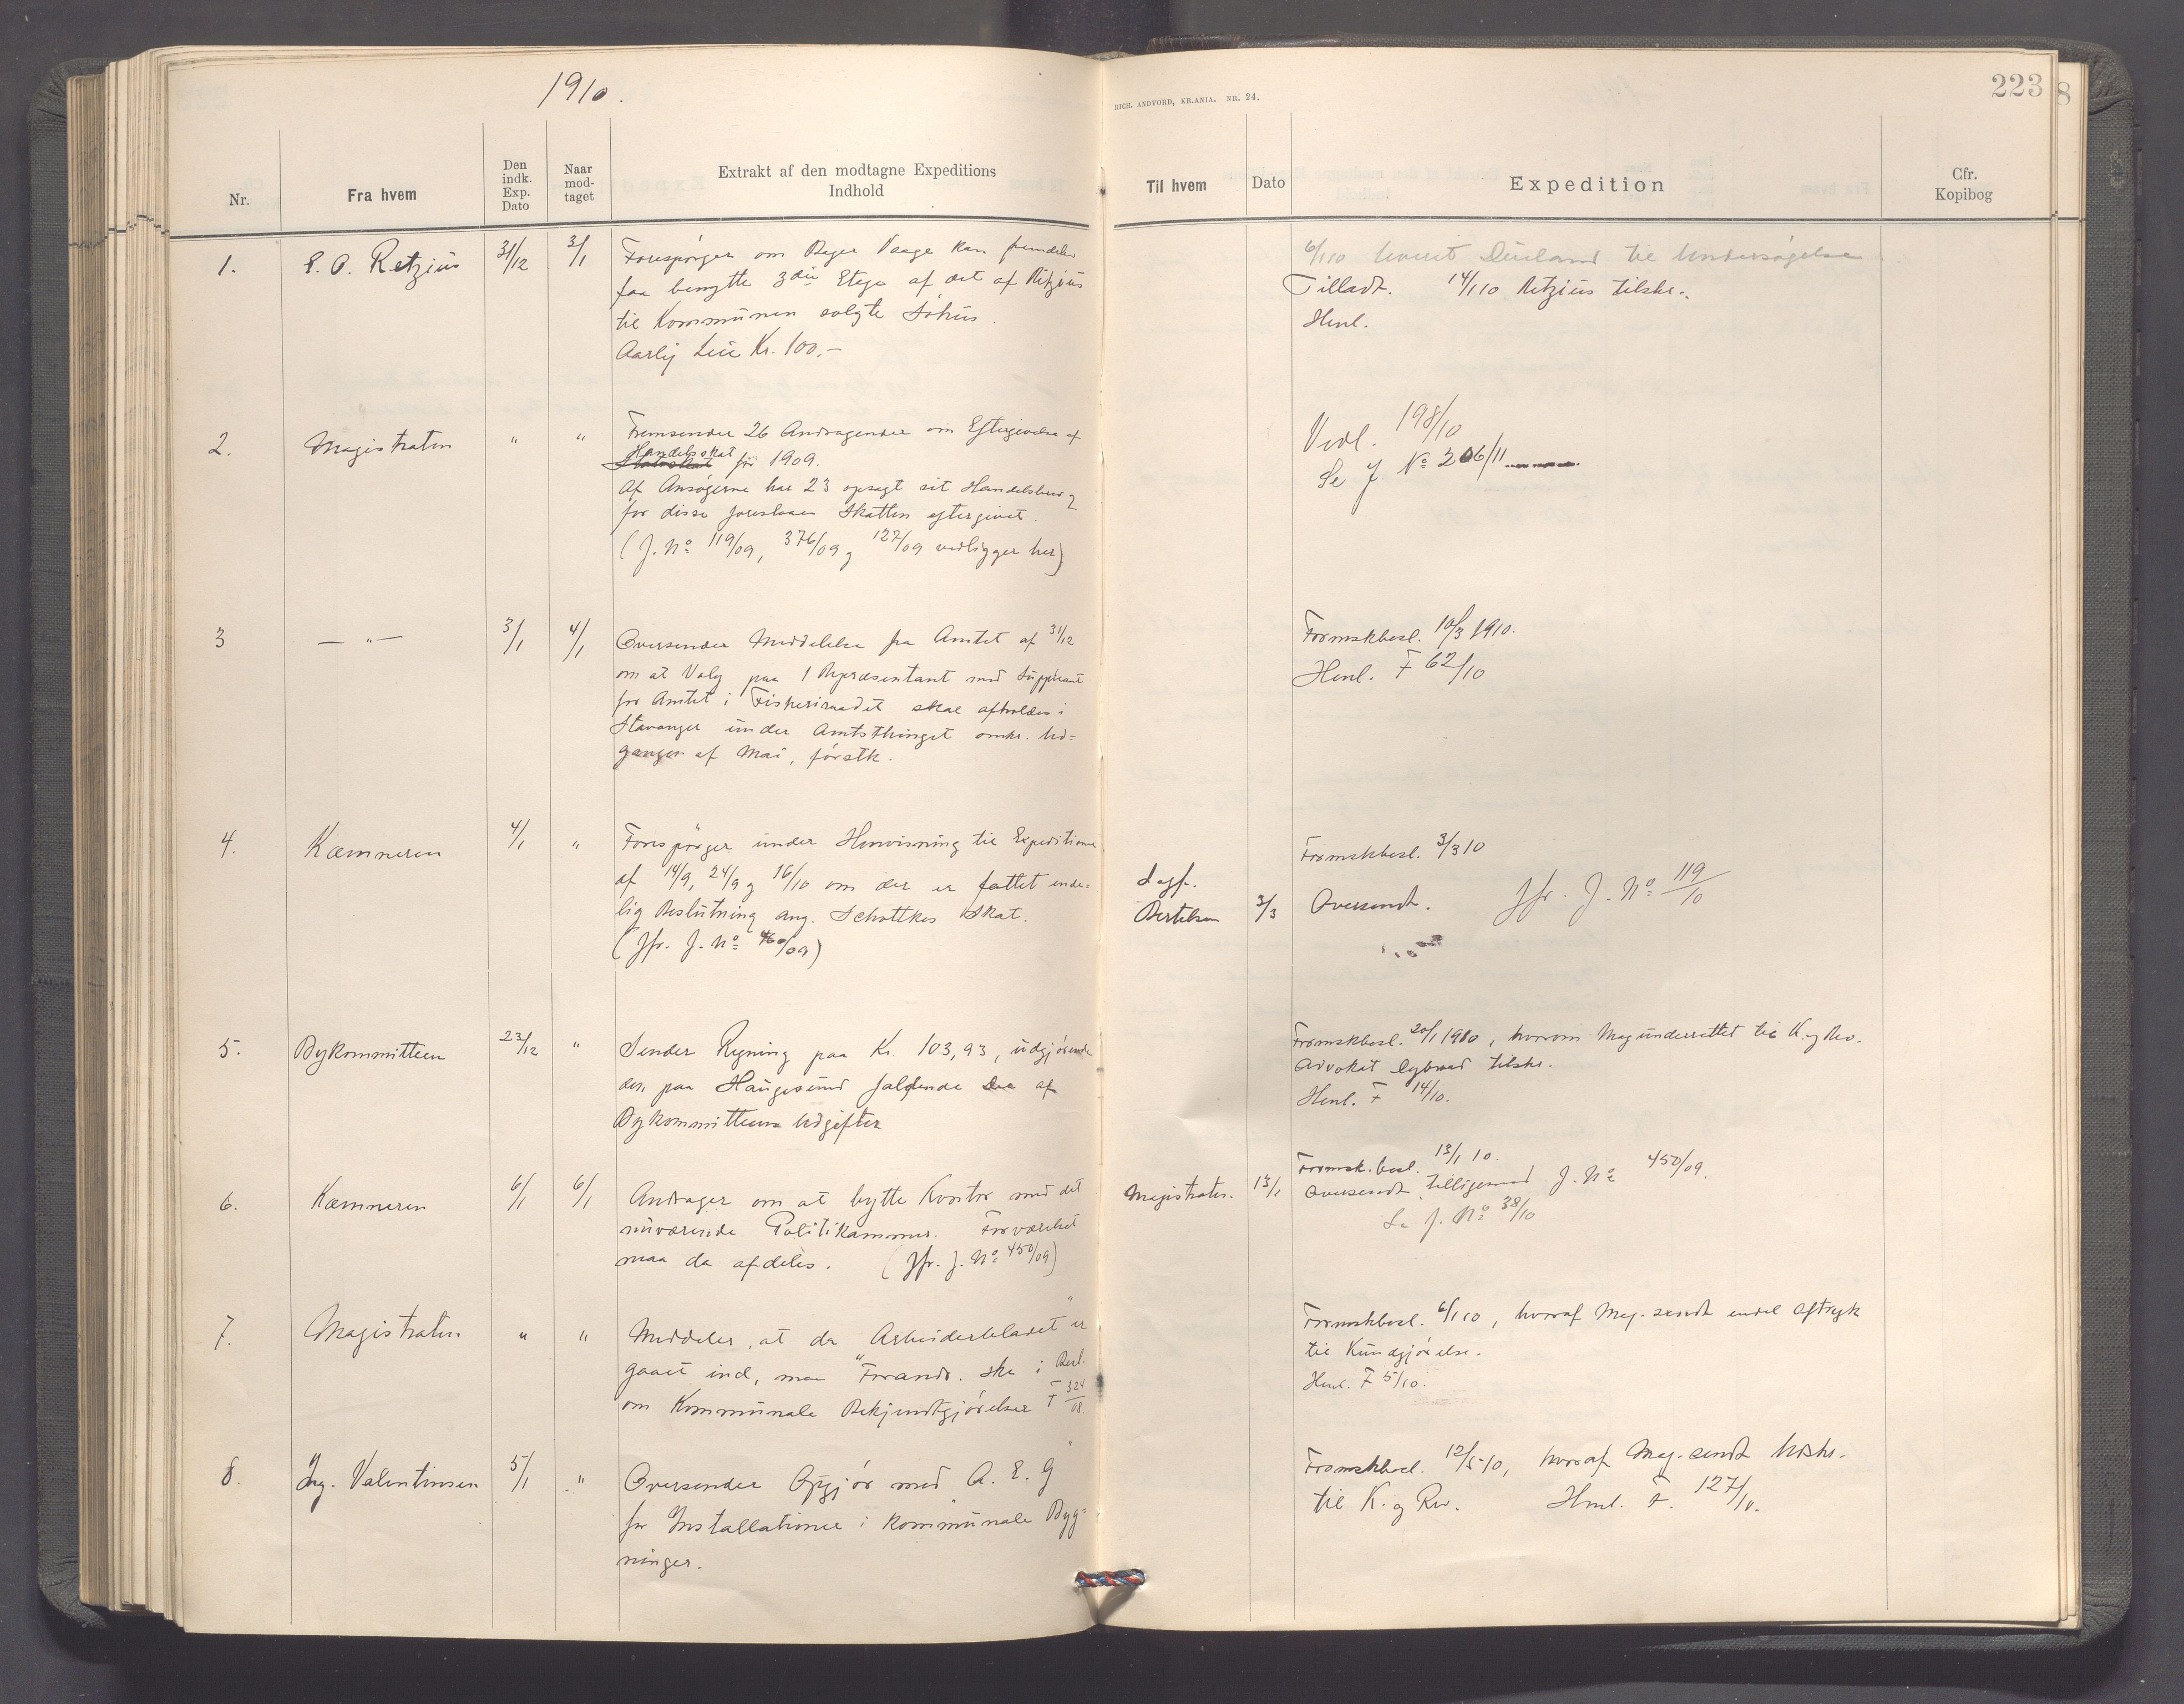 1910.
RICH. ANDVORD, KR.ANIA. NR. 24.
223
8
Nr.
Fra hvem
Den indk. Exp. Dato
Naar mod- taget
Extrakt af den modtagne Expeditions Indhold
Til hvem
Dato
Expedition
Cfr. Kopibog
1. E. O. Retzius 31/12 3/1
Forespørger om Bager Vaage kan fremdeles
faa benytte 3die Etage af det af Retzius
til Kommunen solgte Söhus.
Aarlig Leie Kr. 100.-
6/1 10 til Undersøgelse
Tilladt. 14/1 10 Retzius tilskr.
Henl.
2. Magistraten " "
Fremsender 26 Andragender om Eftergivelse af
Handelsskat for 1909.
Af Ansøgerne har 23 opsagt sit Handelsbrev og
for disse foreslaaes Skatten eftergivet.
(J. No 119/09, 376/09 og 127/09 vedligger her)
Vedl. 198/10
Se J. No 206/11
3 — " — 3/1 4/1
Oversender Meddelelse fra Amtet af 31/12
om at Valg paa 1 Repræsentant med Suppleant
for Amtet i Fiskeriraadet skal afholdes i
Stavanger under Amtsthinget omkr. Ud=
gangen af Mai, förstk.
Formskbesl. 10/3 1910.
Henl. F 62/10
4. Kæmneren 4/1 "
Forespørger under Henvisning til Expeditioner
af 14/9, 24/9 og 16/10 om der er fattet ende=
lig Beslutning ang. Schottkes Skat.
(Jfr. J. No 460/09)
Formskbesl. 3/3 10
Sagf.
Bertelsen 3/3 Oversendt. Jfr. J. No 119/10
5. Bykommitteen 23/12 "
Sender Regning paa Kr. 103,93, udgjørende
den paa Haugesund faldende Del af
Bykommitteens Udgifter
Formskbesl. 20/1 1910, hvorom Mag underrettet til K. og Rev.
Advokat tilskr.
Henl. F 14/10.
6. Kæmneren 6/1 6/1
Andrager om at bytte Kontor med det
nuværende Politikammer. Forværelset
maa da afdeles. (Jfr. J. No 450/09)
Formsk.besl. 13/1 10.
Magistraten. 13/1 Oversendt tilligemed J. No 450/09.
Se J. No 38/10
7. Magistraten " "
Meddeler, at da "Arbeiderbladet" er
gaaet ind, maa Forandr. ske i Besl.
om Kommunale Bekjendtgjörelser F 324/08.
Formskbesl. 6/1 10, hvoraf Mag. sendt endel Aftryk
til Kundgjörelse.
Henl. F 5/10.
8. Ing. Valentinsen 5/1 "
Oversender Opgjör med "A. E. G"
for Installationer i kommunale Byg=
ninger.
Formskbesl. 12/5 10, hvoraf Mag. sendt Udskr.
til K. og Rev. Henl. F. 127/10.